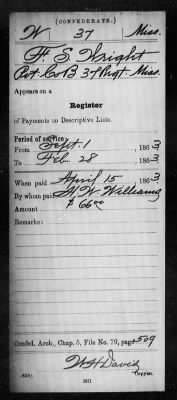 (CONFEDERATE.)
W 37 Miss.
F. S. Wright
Pvt. Co B 37 Regt. Miss.
Appears on a
Register
of Payments on Descriptive Lists.
Period of service:
From Sept. 1, 1863
To Feb 28, 1863
When paid April 15, 1863
By whom paid H. W. Williams
Amount $66.00
Remarks:
Confed. Arch., Chap. 5, File No. 79, page 509
W H David
Copyist.